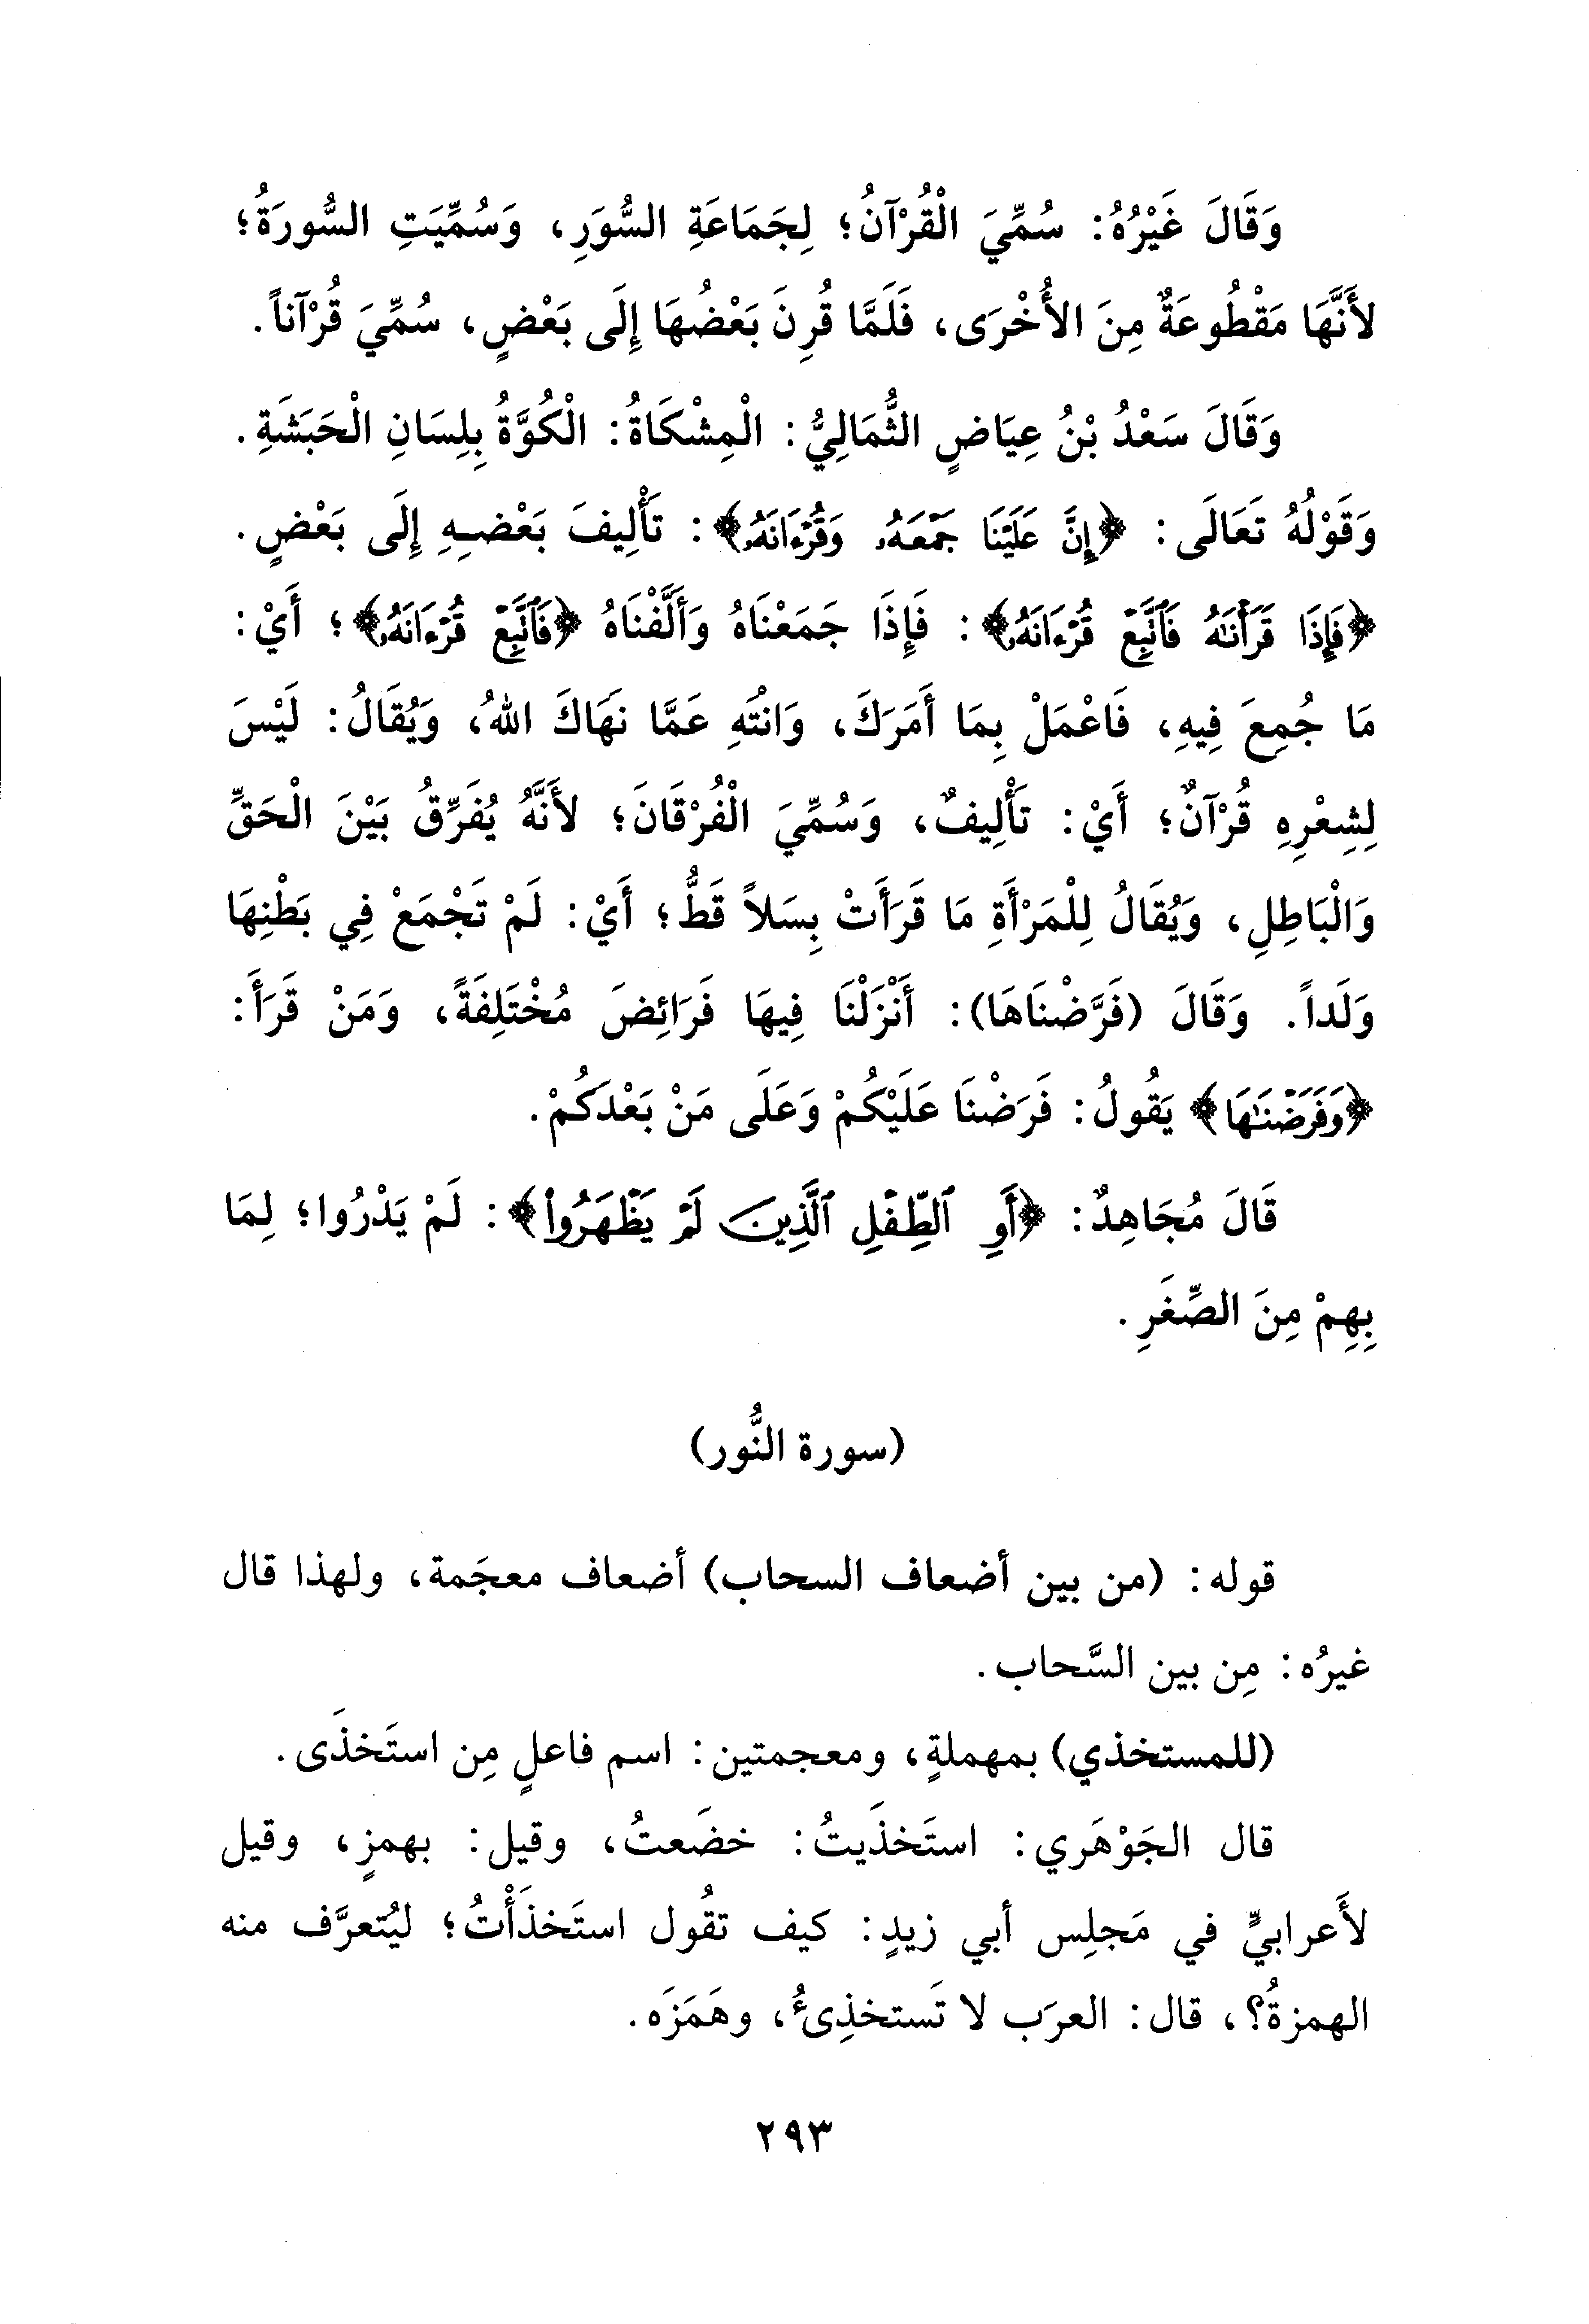 وَقَالَ غَيْرُهُ: سُمِّيَ الْقُرْآنُ؛ لِجَمَاعَةِ السُّوَرِ، وَسُمِّيَتِ السُّورَةُ؛
لأَنَّهَا مَقْطُوعَةٌ مِنَ الأُخْرَى، فَلَمَّا قُرِنَ بَعْضُهَا إِلَى بَعْضٍ، سُمِّيَ قُرْآناً.
وَقَالَ سَعْدُ بْنُ عِيَاضٍ الثُّمَالِيُّ: الْمِشْكَاةُ: الْكُوَّةُ بِلِسَانِ الْحَبَشَةِ.
وَقَوْلُهُ تَعَالَى: ﴿إِنَّ عَلَيْنَا جَمْعَهُۥ وَقُرْءَانَهُۥ﴾: تَأْلِيفَ بَعْضِهِ إِلَى بَعْضٍ.
﴿فَإِذَا قَرَأْنَٰهُ فَٱتَّبِعْ قُرْءَانَهُۥ﴾: فَإِذَا جَمَعْنَاهُ وَأَلَّفْنَاهُ ﴿فَٱتَّبِعْ قُرْءَانَهُۥ﴾؛ أَيْ:
مَا جُمِعَ فِيهِ، فَاعْمَلْ بِمَا أَمَرَكَ، وَانْتَهِ عَمَّا نَهَاكَ اللهُ، وَيُقَالُ: لَيْسَ
لِشِعْرِهِ قُرْآنٌ؛ أَيْ: تَأْلِيفٌ، وَسُمِّيَ الْفُرْقَانَ؛ لأَنَّهُ يُفَرِّقُ بَيْنَ الْحَقِّ
وَالْبَاطِلِ، وَيُقَالُ لِلْمَرْأَةِ مَا قَرَأَتْ بِسَلاً قَطُّ؛ أَيْ: لَمْ تَجْمَعْ فِي بَطْنِهَا
وَلَداً. وَقَالَ (فَرَّضْنَاهَا): أَنْزَلْنَا فِيهَا فَرَائِضَ مُخْتَلِفَةً، وَمَنْ قَرَأَ:
﴿وَفَرَضْنَٰهَا﴾ يَقُولُ: فَرَضْنَا عَلَيْكُمْ وَعَلَى مَنْ بَعْدَكُمْ.
قَالَ مُجَاهِدٌ: ﴿أَوِ ٱلطِّفْلِ ٱلَّذِينَ لَمْ يَظْهَرُوا۟﴾: لَمْ يَدْرُوا؛ لِمَا
بِهِمْ مِنَ الصِّغَرِ.
(سورة النُّور)
قوله: (من بين أضعاف السحاب) أضعاف معجَمة، ولهذا قال
غيرُه: مِن بين السَّحاب.
(للمستخذي) بمهملةٍ، ومعجمتين: اسم فاعلٍ مِن استَخذَى.
قال الجَوْهَري: استَخذَيتُ: خضَعتُ، وقيل: بهمزٍ، وقيل
لأَعرابيٍّ في مَجلِس أبي زيدٍ: كيف تقُول استَخذَأْتُ؛ ليُتعرَّف منه
الهمزةُ؟، قال: العرَب لا تَستخذِئُ، وهَمَزَه.
٢٩٣